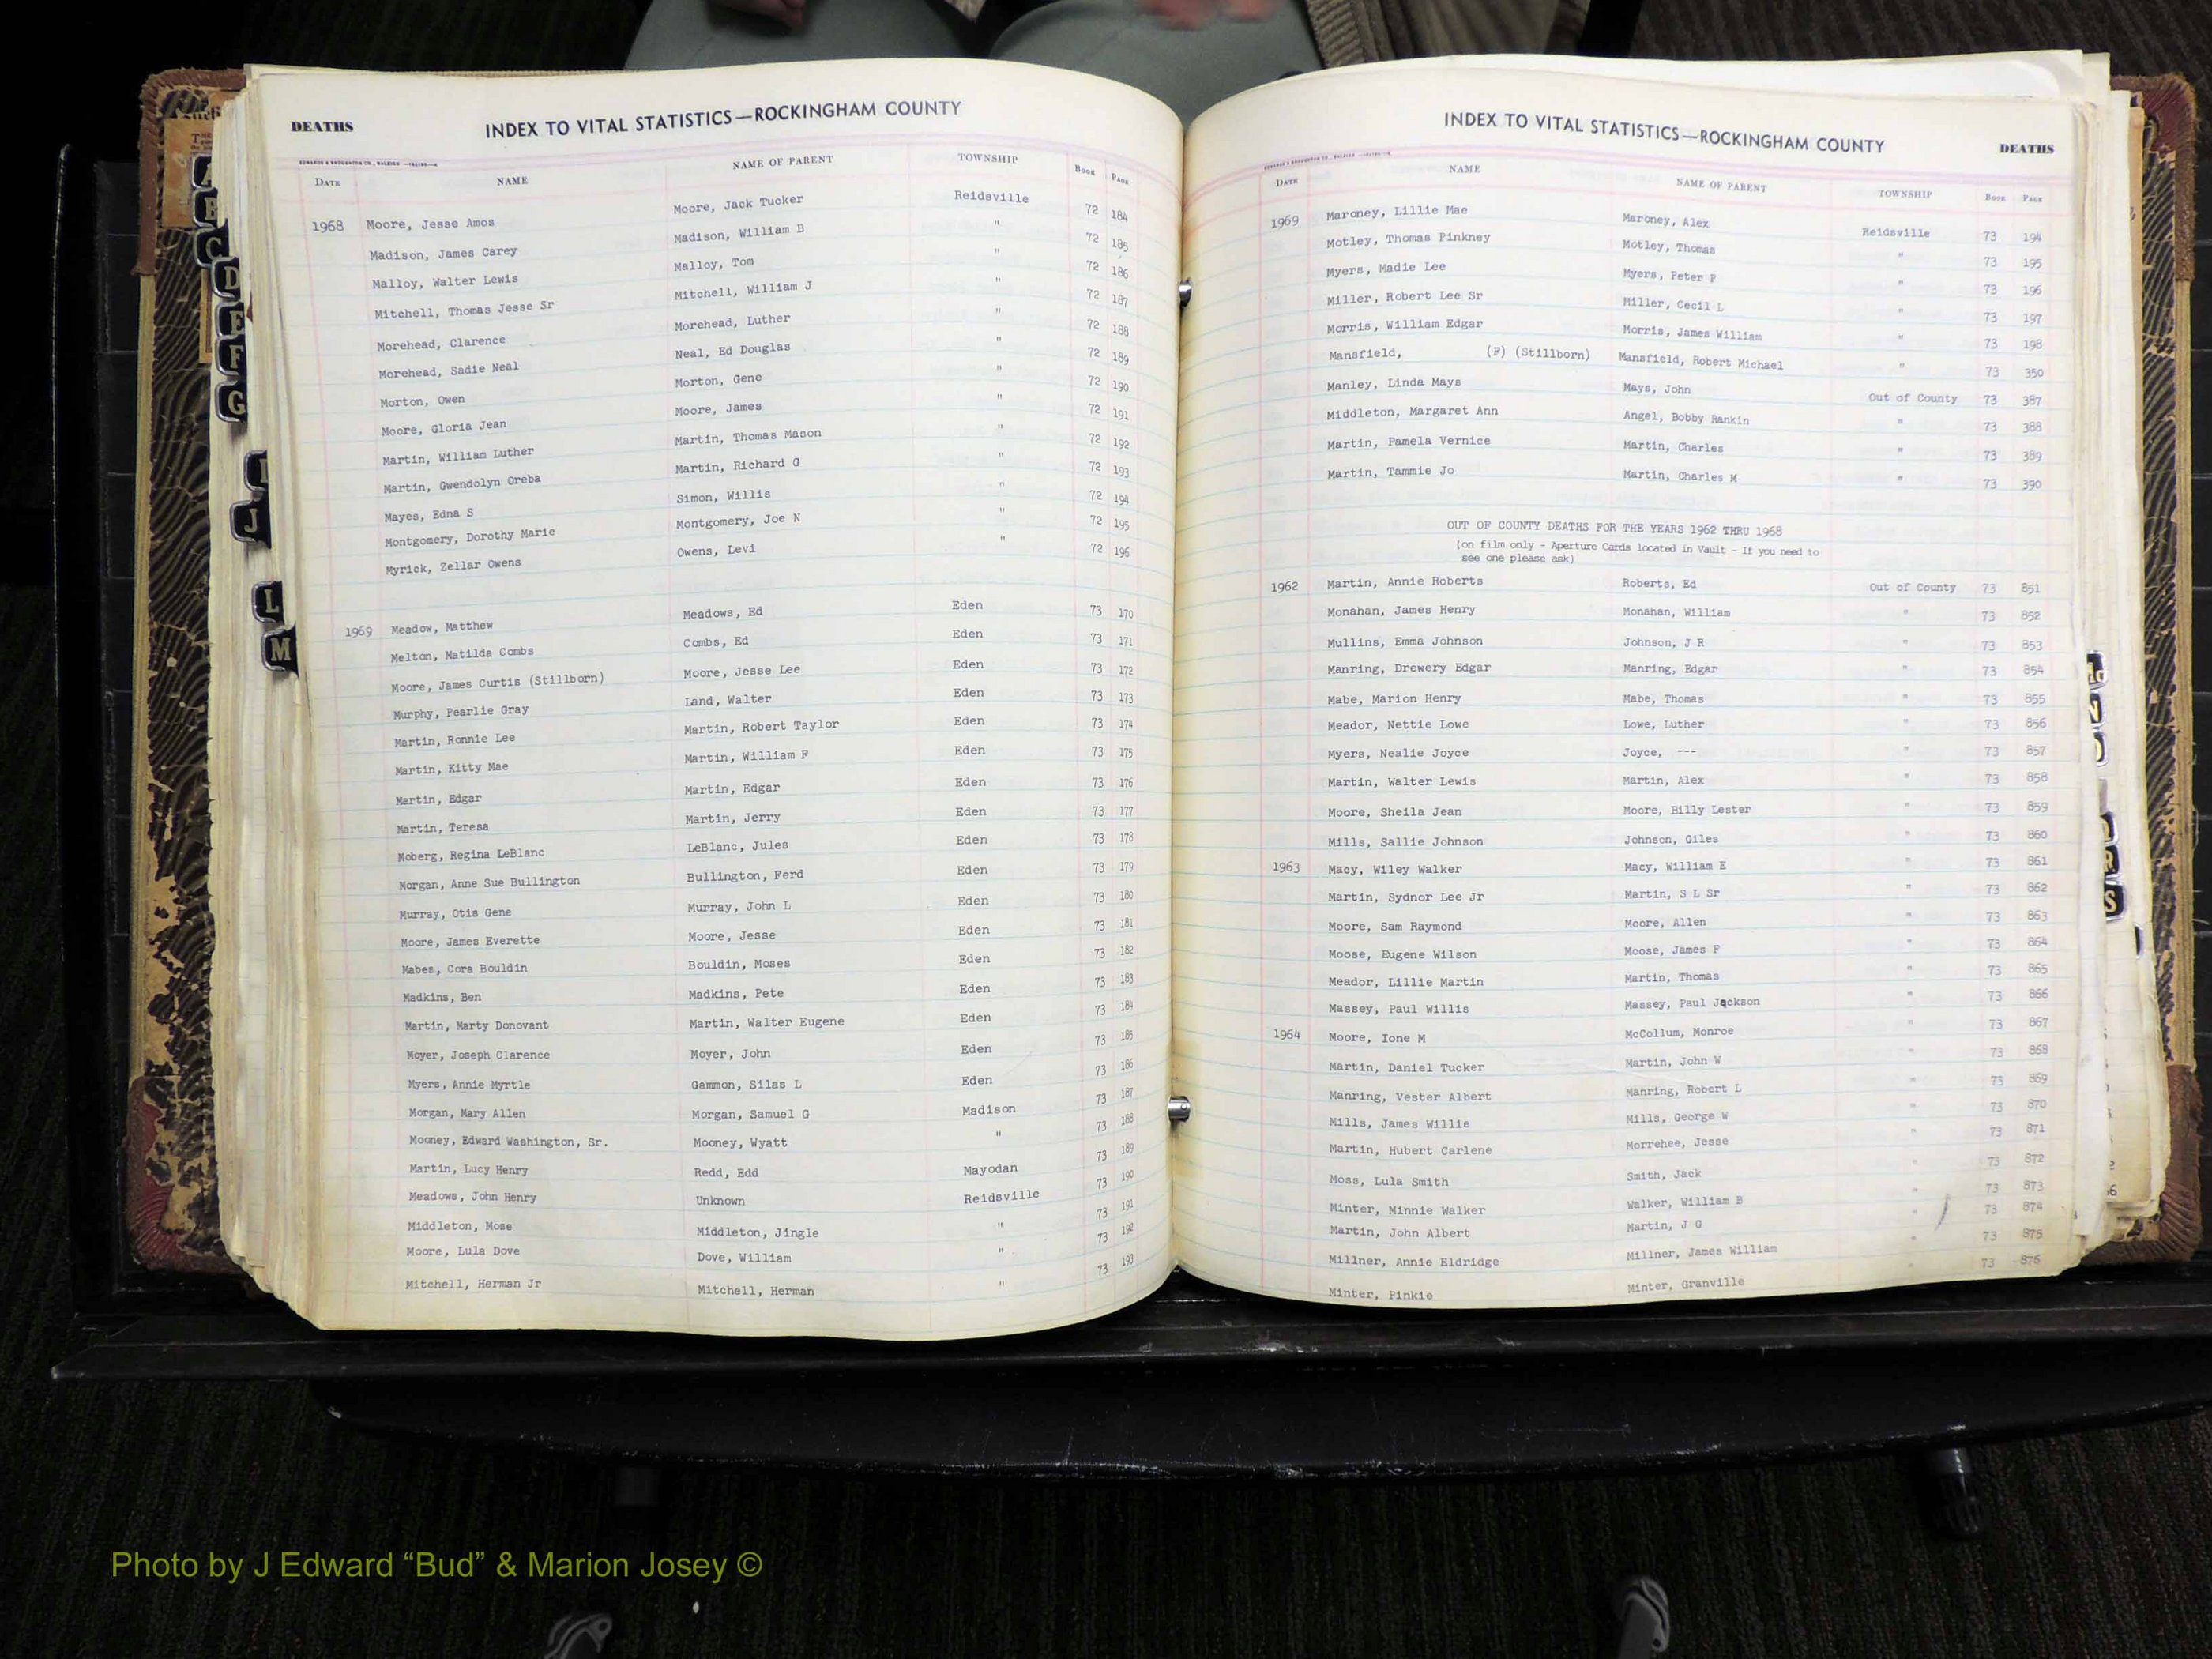 DEATHS
INDEX TO VITAL STATISTICS—ROCKINGHAM COUNTY
DATE NAME NAME OF PARENT TOWNSHIP BOOK PAGE
1968 Moore, Jesse Amos Moore, Jack Tucker Reidsville 72 184
Madison, James Carey Madison, William B " 72 185
Malloy, Walter Lewis Malloy, Tom " 72 186
Mitchell, Thomas Jesse Sr Mitchell, William J " 72 187
Morehead, Clarence Morehead, Luther " 72 188
Morehead, Sadie Neal Neal, Ed Douglas " 72 189
Morton, Owen Morton, Gene " 72 190
Moore, Gloria Jean Moore, James " 72 191
Martin, William Luther Martin, Thomas Mason " 72 192
Martin, Gwendolyn Oreba Martin, Richard G " 72 193
Mayes, Edna S Simon, Willis " 72 194
Montgomery, Dorothy Marie Montgomery, Joe N " 72 195
Myrick, Zellar Owens Owens, Levi " 72 196
1969 Meadow, Matthew Meadows, Ed Eden 73 170
Melton, Matilda Combs Combs, Ed Eden 73 171
Moore, James Curtis (Stillborn) Moore, Jesse Lee Eden 73 172
Murphy, Pearlie Gray Land, Walter Eden 73 173
Martin, Ronnie Lee Martin, Robert Taylor Eden 73 174
Martin, Kitty Mae Martin, William F Eden 73 175
Martin, Edgar Martin, Edgar Eden 73 176
Martin, Teresa Martin, Jerry Eden 73 177
Moberg, Regina LeBlanc LeBlanc, Jules Eden 73 178
Morgan, Anne Sue Bullington Bullington, Ferd Eden 73 179
Murray, Otis Gene Murray, John L Eden 73 180
Moore, James Everette Moore, Jesse Eden 73 181
Mabes, Cora Bouldin Bouldin, Moses Eden 73 182
Madkins, Ben Madkins, Pete Eden 73 183
Martin, Marty Donovant Martin, Walter Eugene Eden 73 184
Moyer, Joseph Clarence Moyer, John Eden 73 185
Myers, Annie Myrtle Gammon, Silas L Eden 73 186
Morgan, Mary Allen Morgan, Samuel G Madison 73 187
Mooney, Edward Washington, Sr. Mooney, Wyatt " 73 188
Martin, Lucy Henry Redd, Edd Mayodan 73 189
Meadows, John Henry Unknown Reidsville 73 190
Middleton, Mose Middleton, Jingle " 73 191
Moore, Lula Dove Dove, William " 73 192
Mitchell, Herman Jr Mitchell, Herman " 73 193
INDEX TO VITAL STATISTICS—ROCKINGHAM COUNTY
DEATHS
DATE NAME NAME OF PARENT TOWNSHIP BOOK PAGE
1969 Maroney, Lillie Mae Maroney, Alex Reidsville 73 194
Motley, Thomas Pinkney Motley, Thomas " 73 195
Myers, Madie Lee Myers, Peter P " 73 196
Miller, Robert Lee Sr Miller, Cecil L " 73 197
Morris, William Edgar Morris, James William " 73 198
Mansfield, (F) (Stillborn) Mansfield, Robert Michael " 73 350
Manley, Linda Mays Mays, John Out of County 73 387
Middleton, Margaret Ann Angel, Bobby Rankin " 73 388
Martin, Pamela Vernice Martin, Charles " 73 389
Martin, Tammie Jo Martin, Charles M " 73 390
OUT OF COUNTY DEATHS FOR THE YEARS 1962 THRU 1968
(on film only - Aperture Cards located in Vault - If you need to
see one please ask)
1962 Martin, Annie Roberts Roberts, Ed Out of County 73 851
Monahan, James Henry Monahan, William " 73 852
Mullins, Emma Johnson Johnson, J R " 73 853
Manring, Drewery Edgar Manring, Edgar " 73 854
Mabe, Marion Henry Mabe, Thomas " 73 855
Meador, Nettie Lowe Lowe, Luther " 73 856
Myers, Nealie Joyce Joyce, --- " 73 857
Martin, Walter Lewis Martin, Alex " 73 858
Moore, Sheila Jean Moore, Billy Lester " 73 859
Mills, Sallie Johnson Johnson, Giles " 73 860
1963 Macy, Wiley Walker Macy, William E " 73 861
Martin, Sydnor Lee Jr Martin, S L Sr " 73 862
Moore, Sam Raymond Moore, Allen " 73 863
Moose, Eugene Wilson Moose, James F " 73 864
Meador, Lillie Martin Martin, Thomas " 73 865
Massey, Paul Willis Massey, Paul Jackson " 73 866
1964 Moore, Ione M McCollum, Monroe " 73 867
Martin, Daniel Tucker Martin, John W " 73 868
Manring, Vester Albert Manring, Robert L " 73 869
Mills, James Willie Mills, George W " 73 870
Martin, Hubert Carlene Morrehee, Jesse " 73 871
Moss, Lula Smith Smith, Jack " 73 872
Minter, Minnie Walker Walker, William B " 73 873
Martin, John Albert Martin, J G " 73 874
Millner, Annie Eldridge Millner, James William " 73 875
Minter, Pinkie Minter, Granville " 73 876
A
B
C
D
E
F
G
I
J
L
M
N
O
R
S
Photo by J Edward “Bud” & Marion Josey ©